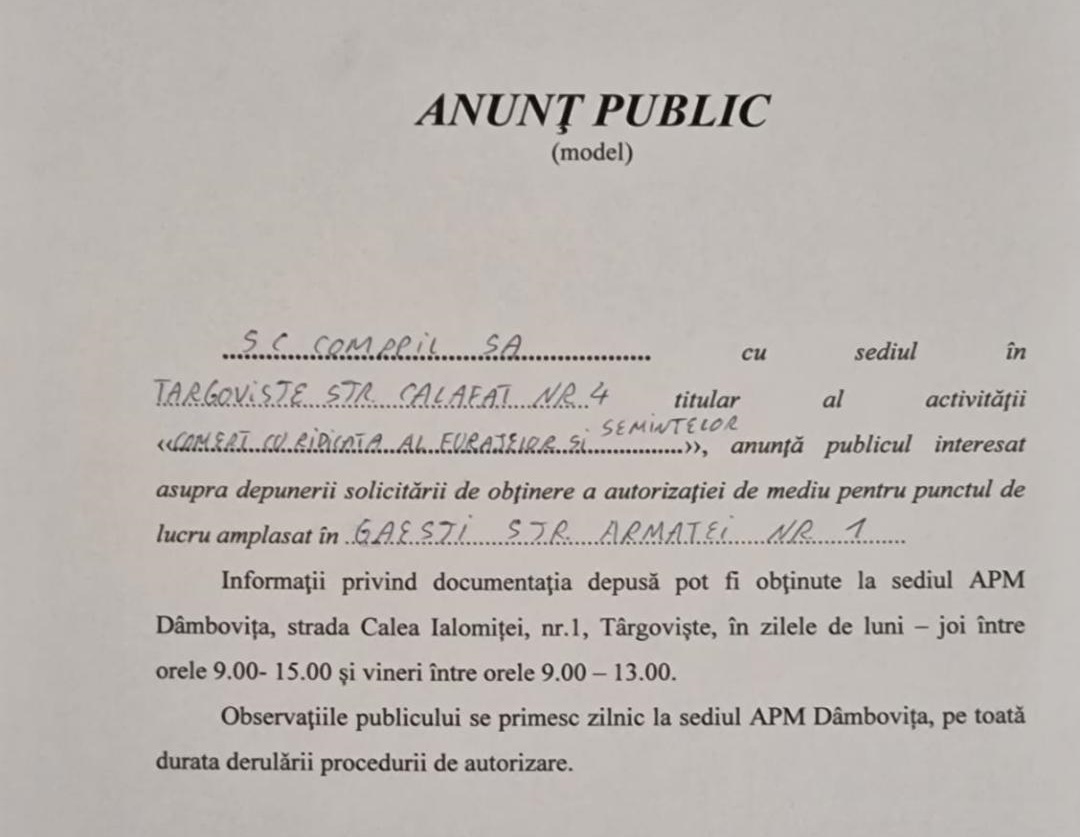 ANUNŢ PUBLIC
(model)
SC COMPPIL SA cu sediul în
TARGOVISTE STR CALAFAT NR 4 titular al activităţii
‹‹COMERT CU RIDICATA AL FURAJELOR SI SEMINTELOR››, anunţă publicul interesat
asupra depunerii solicitării de obţinere a autorizaţiei de mediu pentru punctul de
lucru amplasat în GAESTI STR ARMATEI NR 1
Informaţii privind documentaţia depusă pot fi obţinute la sediul APM
Dâmboviţa, strada Calea Ialomiţei, nr.1, Târgovişte, în zilele de luni – joi între
orele 9.00- 15.00 şi vineri între orele 9.00 – 13.00.
Observaţiile publicului se primesc zilnic la sediul APM Dâmboviţa, pe toată
durata derulării procedurii de autorizare.